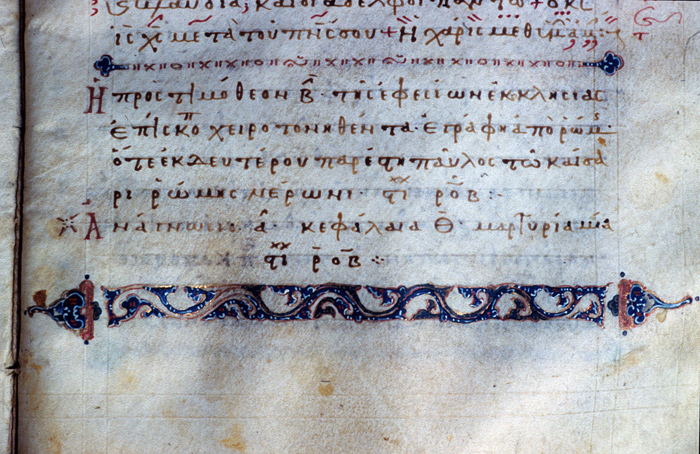 κλαυδία, καὶ οἱ ἀδελφοὶ πάντες + ὁ κς
ις χς μετὰ τοῦ πνς σου + Ἡ χάρις μεθ ὑμῶν ἀμ
Ἡ πρὸς τιμόθεον β̅· τῆς ἐφεσίων ἐκκλησίας
ἐπίσκοπ χειροτονηθέντα· ἐγράφη ἀπὸ ῥώμς
ὅτε ἐκ δευτέρου παρέστη παῦλος τῷ καίσα
ρι ῥώμης νέρωνι· στιχ ρο̅β̅
Ἀνάγνωσις α̅· κεφάλαια θ̅· μαρτυρία μία
στιχ ρο̅β̅ :·